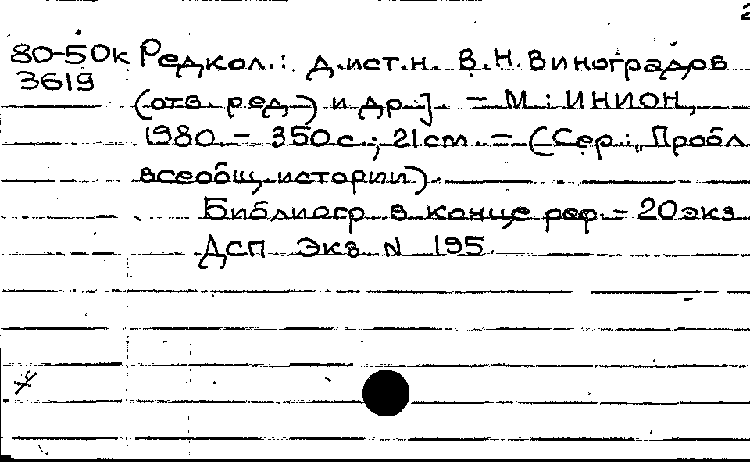 2
80-50к Редкол.: д.ист.н. В.Н.Виноградов
3619 (отв. ред.) и др.]. - М.: ИНИОН,
1980. - 350с.; 21см. - (Сер.: Пробл.
всеобщ. истории).
Библиогр. в конце реф. - 20экз
ДСП Экз N 195.